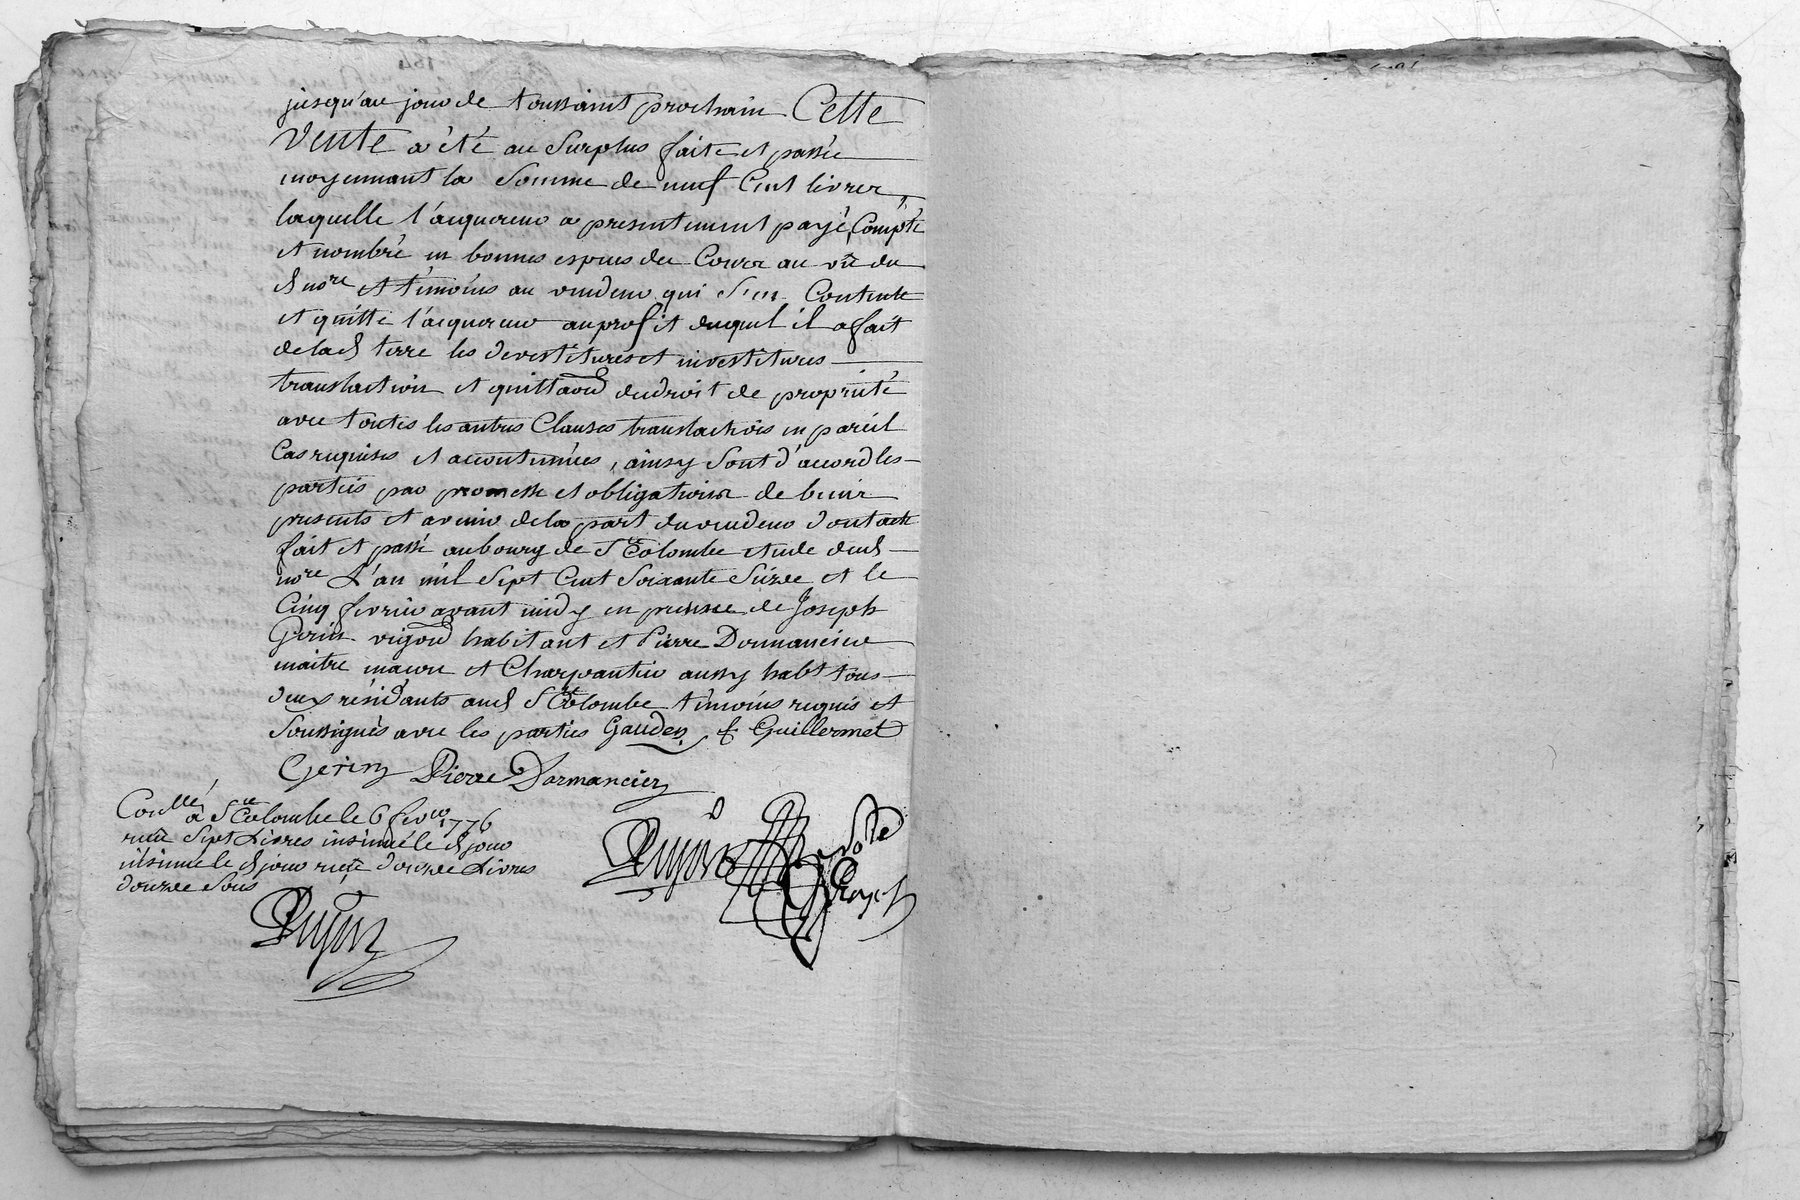 jusqu'au jour de toussaint prochain Cette
Vente a été au Surplus faite et passée
moyennant la Somme de neuf Cent livres
laquelle l'acquereur a presentement payé, Compté
et nombré en bonnes especes de Cours au vû du
d nore et témoins au vendeur qui s'en Contente
et quitte l'acquereur au profit duquel il a fait
de lad terre les devestitures et investitures
translation et quittance du droit de proprieté
avec toutes les autres Clauses translatives en pareil
Cas requises et accoutumées, ainsy Sont d'accord les
parties par promesse et obligations de biens
presents et avenir de la part du vendeur dont acte
fait et passé au bourg de Ste Colombe etude dud
nore L'an mil Sept Cent Soixante Seize et le
Cinq fevrier avant midy en presence de Joseph
Gerin vigon habitant et Pierre Dormancier
maitre maçon et Charpantier aussy habt tous
deux résidants aud Ste Colombe témoins requis et
Soussignés avec les parties Gauden f Guillermet
Gerin Pierre Dormancier
Conllé à Ste Colombe le 6 fevrier 1776
reçu Sept Livres insinué le d jour
insinué le d jour reçu douze Livres
douze Sols
Pujon
Pujon